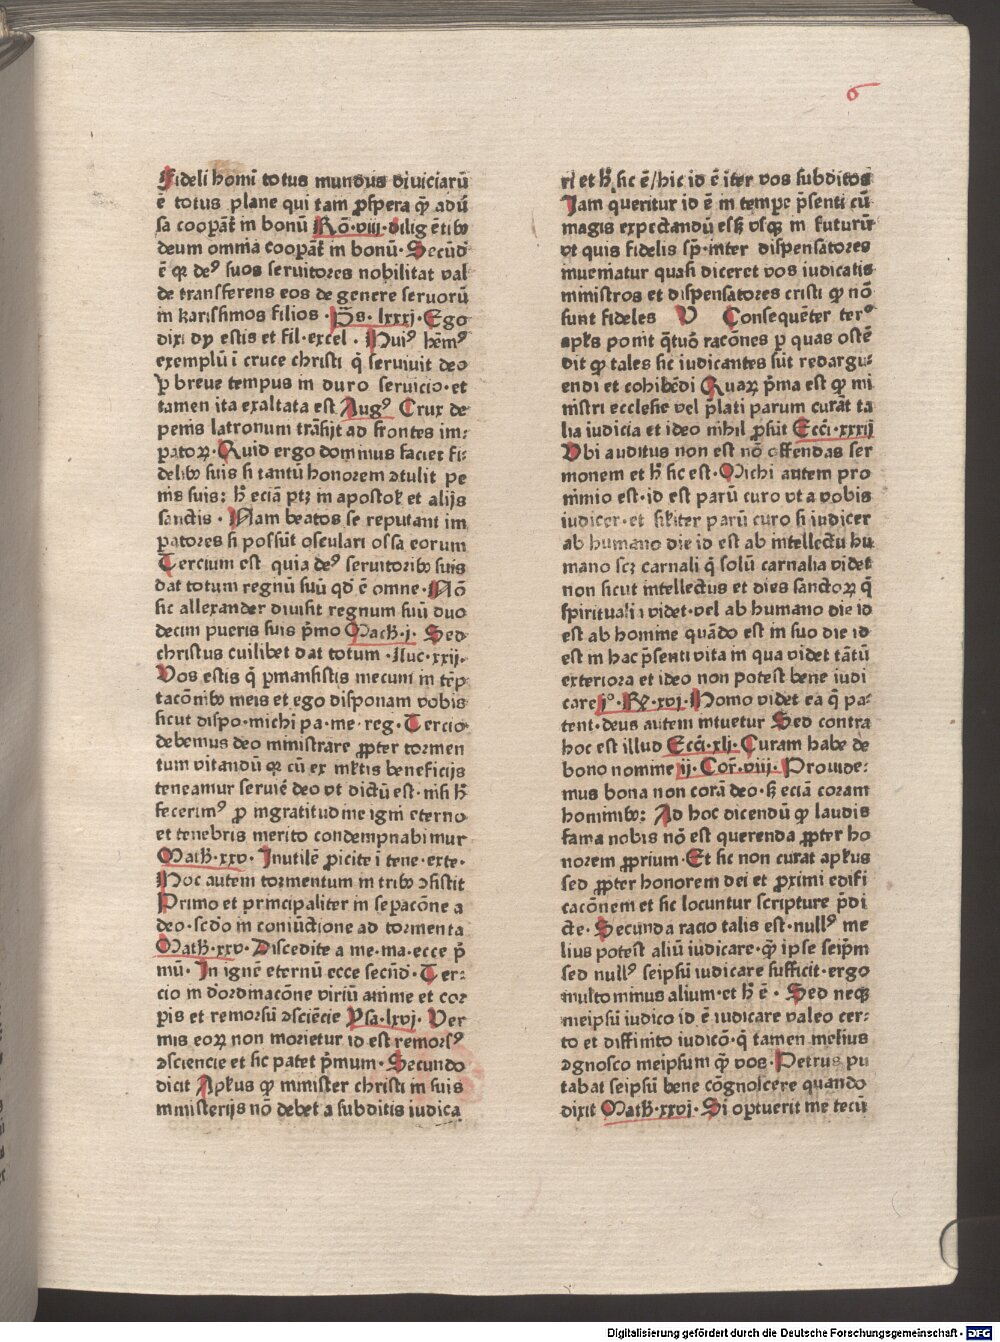 6
Fideli homī totus mundus diuiciarū
ē totus plane qui tam ꝓspera ꝙ̄ aduͤ
sa cooꝑat̄ in bonū Rō·viij·diligētibꝰ
deum omnia cooꝑat̄ in bonū· Secūd
ē qꝛ deꝰ suos seruitores nobilitat val
de transferens eos de genere seruorū
in karissimos filios ·P̄s·lxxxj·Ego
dixi dÿ estis et fil·excel· Huiꝰ hēmꝰ
exemplū ī cruce christi q̄ seruiuit deo
ꝑ breue tempus in duro seruicio·et
tamen ita exaltata est Augꝰ Crux de
penis latronum trāsijt ad frontes im-
patoꝝ·Quid ergo dominus faciet fi-
delibꝰ suis si tantū honorem ꝯtulit pe
nis suis: h̄ eciā ptꝫ in apostol̄ et alijs
sanctis· Nam beatos se reputant im
ꝑatores si possūt osculari ossa eorum
Tercium est quia deꝰ seruitoribꝰ suis
dat totum regnū suū qd̄ ē omne·Nō
sic allexander diuisit regnum suū duo
decim pueris suis p̄mo Mach·j· Sed
christus cuilibet dat totum ·Luc·xxij·
Vos estis q̄ ꝑmansistis mecum in tēp
tacōnibꝰ meis et ego disponam vobis
sicut dispo·michi pa·me·reg·Tercio
debemus deo ministrare ꝓpter tormen
tum vitandū qꝛ cū ex ml̄tis beneficijs
teneamur seruiē deo vt dictū est·nisi h̄
fecerimꝰ ꝓ ingratitudine igni eterno
et tenebris merito condempnabimur
Math·xxv·Inutilē ꝓicite ī tene·exte·
Hoc autem tormentum in tribꝰ ꝯsistit
Primo et principaliter in sepacōne a
deo·scd̄o in coniūctione ad tormenta
Math·xxv·Discedite a me·ma·ecce p̄
mū· In ignē eternū ecce secūd·Ter-
cio in dͤordinacōne viriū anime et cor
ꝑis et remorsū ꝯsciēcie Psa·lxvj·Ver
mis eoꝝ non morietur id est remorsꝰ
ꝯsciencie et sic patet p̄mum·Secundo
dicit Apl̄us ꝙ minister christi in suis
ministerijs nō debet a subditis iudica
ri et h̄ sic ē/hic id ē iter vos subditos
Jam queritur id ē in tempe p̄senti cū
magis expectandū esset vsqꝫ in futurū
vt quis fidelis sp̄·inter dispensatores
inueniatur quasi diceret vos iudicatis
ministros et dispensatores cristi ꝙ nō
sunt fideles V Consequēter terꝰ
apl̄s ponit q̄tuō racōnes ꝑ quas ostē
dit ꝙ tales sic iudicantes sūt redargu-
endi et cohibēdi Quaꝝ p̄ma est ꝙ mi
nistri ecclesie vel p̄lati parum curāt ta
lia iudicia et ideo nihil ꝓsūt Ecci·xxxij
Vbi auditus non est nō offendas ser
monem et h̄ sic est·Michi autem pro
minimo est·id est parū curo vt a vobis
iudicer·et sil̄iter parū curo si iudicer
ab humano die id est ab intellectu hu
mano scꝫ carnali q̄ solū carnalia videt
non sicut intellectus et dies sanctoꝝ q̄
spiritualia videt·vel ab humano die id
est ab homine quādo est in suo die id
est in hac p̄senti vita in qua videt tātū
exteriora et ideo non potest bene iudi
care jº·Rͤg·xvj·Homo videt ea q̄ pa-
tent·deus autem intuetur Sed contra
hoc est illud Ecci·xlj·Curam habe de
bono nomine ij·Cor̄·viij·Prouide-
mus bona non corā deo·sꝫ eciā coram
hominibꝰ: Ad hoc dicendū ꝙ laudis
fama nobis nō est querenda ꝓpter ho
norem ꝓprium·Et sic non curat apl̄us
sed ꝓpter honorem dei et ꝓximi edifi
cacōnem et sic locuntur scripture p̄di
cte· Secunda racio talis est·nullꝰ me
lius potest aliū iudicare·ꝙ̄ ipse seip̄m
sed nullꝰ seipsū iudicare sufficit·ergo
multo minus alium·et h̄ ē· Sed neqꝫ
meipsū iudico id ē iudicare valeo cer-
to et diffinito iudicō·q̄ tamen melius
ꝯgnosco meipsum ꝙ̄ vos·Petrus pu
tabat seipsū bene cōgnoscere quando
dixit Math·xxvj·Si oportuerit me tecū
Digitalisierung gefördert durch die Deutsche Forschungsgemeinschaft - DFG